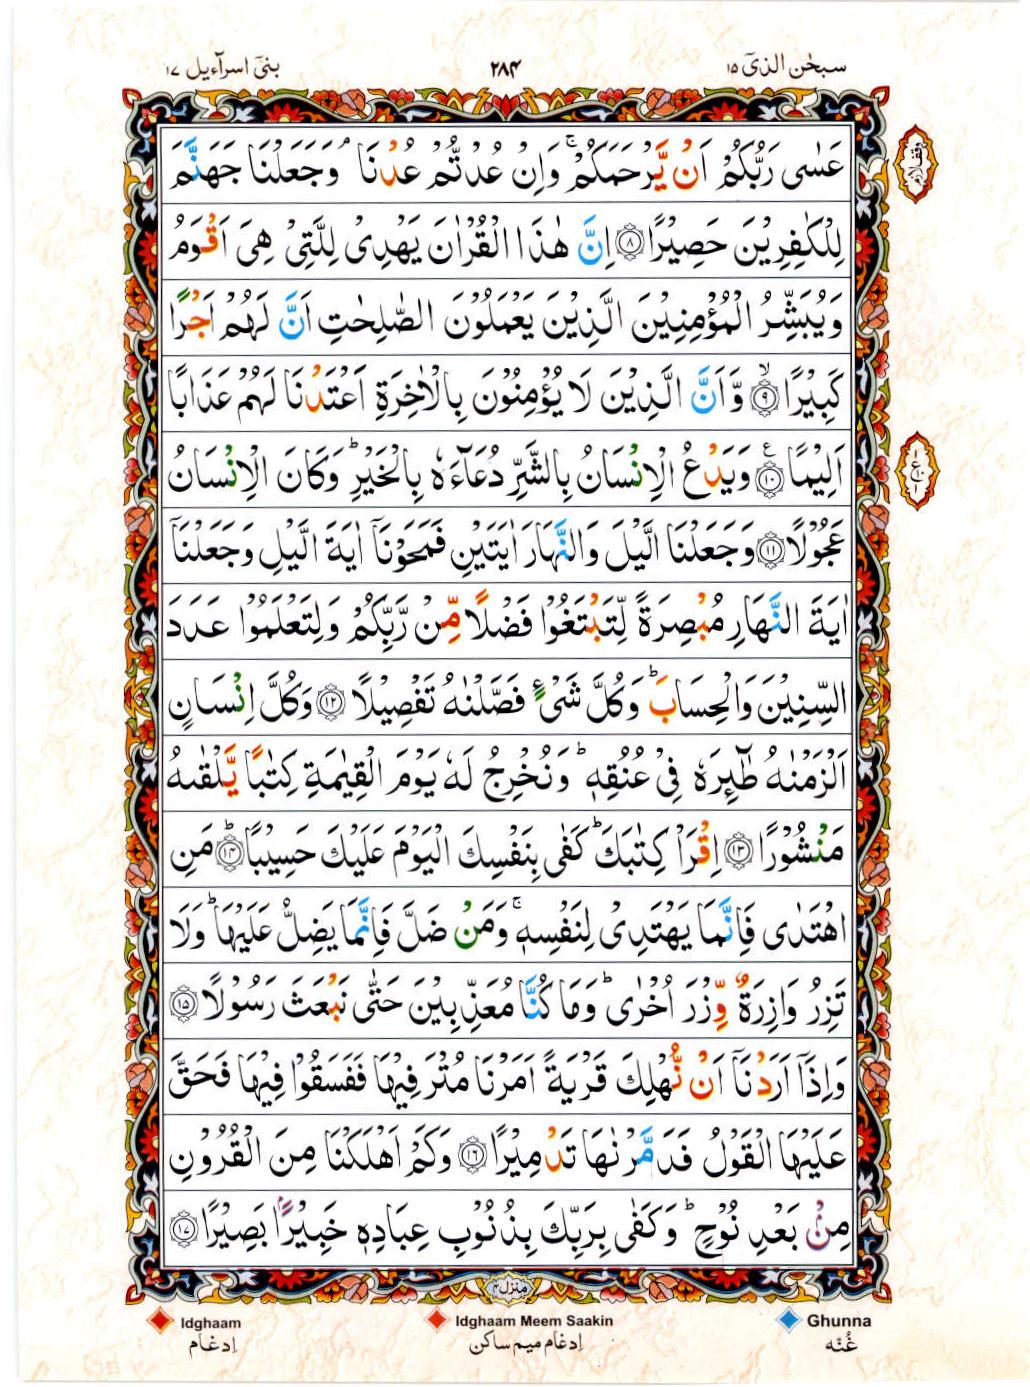 سبحٰن الذیٓ ١٥
٢٨٤
بنیٓ اسرآءیل ١٧
وقف لازم
عَسٰى رَبُّكُمْ اَنْ يَّرْحَمَكُمْ ۚ وَاِنْ عُدْتُّمْ عُدْنَا ۘ وَجَعَلْنَا جَهَنَّمَ
لِلْكٰفِرِيْنَ حَصِيْرًا ﴿٨﴾ اِنَّ هٰذَا الْقُرْاٰنَ يَهْدِىْ لِلَّتِىْ هِىَ اَقْوَمُ
وَيُبَشِّرُ الْمُؤْمِنِيْنَ الَّذِيْنَ يَعْمَلُوْنَ الصّٰلِحٰتِ اَنَّ لَهُمْ اَجْرًا
كَبِيْرًا ۙ﴿٩﴾ وَّاَنَّ الَّذِيْنَ لَا يُؤْمِنُوْنَ بِالْاٰخِرَةِ اَعْتَدْنَا لَهُمْ عَذَابًا
اَلِيْمًا ﴿١٠﴾ع وَيَدْعُ الْاِنْسَانُ بِالشَّرِّ دُعَآءَهٗ بِالْخَيْرِ ؕ وَكَانَ الْاِنْسَانُ
عَجُوْلًا ﴿١١﴾ وَجَعَلْنَا الَّيْلَ وَالنَّهَارَ اٰيَتَيْنِ فَمَحَوْنَاۤ اٰيَةَ الَّيْلِ وَجَعَلْنَاۤ
اٰيَةَ النَّهَارِ مُبْصِرَةً لِّتَبْتَغُوْا فَضْلًا مِّنْ رَّبِّكُمْ وَلِتَعْلَمُوْا عَدَدَ
السِّنِيْنَ وَالْحِسَابَ ؕ وَكُلَّ شَىْءٍ فَصَّلْنٰهُ تَفْصِيْلًا ﴿١٢﴾ وَكُلَّ اِنْسَانٍ
اَلْزَمْنٰهُ طٰٓٮِٕرَهٗ فِىْ عُنُقِهٖ ؕ وَنُخْرِجُ لَهٗ يَوْمَ الْقِيٰمَةِ كِتٰبًا يَّلْقٰٮهُ
مَنْشُوْرًا ﴿١٣﴾ اِقْرَاْ كِتٰبَكَ ؕ كَفٰى بِنَفْسِكَ الْيَوْمَ عَلَيْكَ حَسِيْبًا ؕ﴿١٤﴾ مَنِ
اهْتَدٰى فَاِنَّمَا يَهْتَدِىْ لِنَفْسِهٖ ۚ وَمَنْ ضَلَّ فَاِنَّمَا يَضِلُّ عَلَيْهَا ؕ وَلَا
تَزِرُ وَازِرَةٌ وِّزْرَ اُخْرٰى ؕ وَمَا كُنَّا مُعَذِّبِيْنَ حَتّٰى نَبْعَثَ رَسُوْلًا ﴿١٥﴾
وَاِذَاۤ اَرَدْنَاۤ اَنْ نُّهْلِكَ قَرْيَةً اَمَرْنَا مُتْرَفِيْهَا فَفَسَقُوْا فِيْهَا فَحَقَّ
عَلَيْهَا الْقَوْلُ فَدَمَّرْنٰهَا تَدْمِيْرًا ﴿١٦﴾ وَكَمْ اَهْلَكْنَا مِنَ الْقُرُوْنِ
مِنْۢ بَعْدِ نُوْحٍ ؕ وَكَفٰى بِرَبِّكَ بِذُنُوْبِ عِبَادِهٖ خَبِيْرًۢا بَصِيْرًا ﴿١٧﴾
منزل ٤
Idghaam
اِدغام
Idghaam Meem Saakin
اِدغام میم ساکن
Ghunna
غُنّه